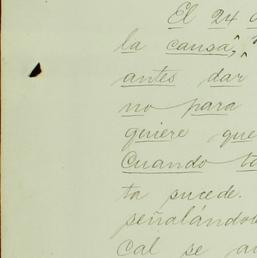 El 24
la causa,
antes dar
no para
quiere que
Cuando
ta sucede.
señalándo
cal se